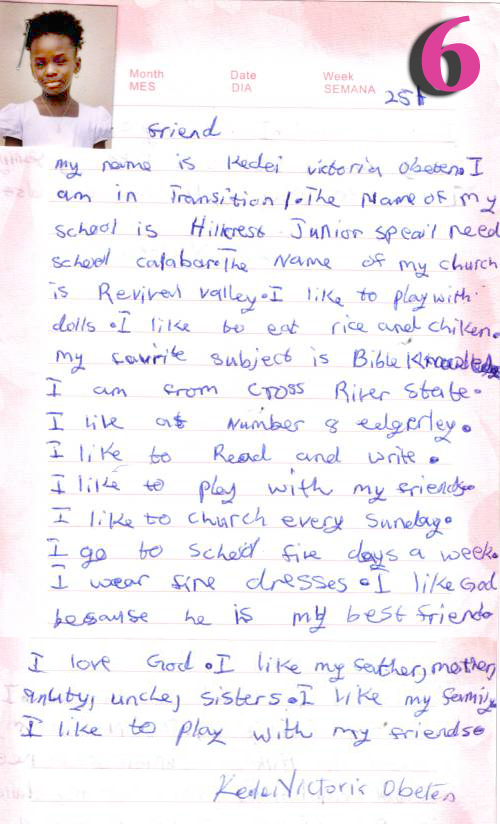 6
Month Date Week
MES DIA SEMANA 25t
friend
my name is Kedei victoria Obeten. I
am in Transition 1. The Name of my
school is Hillcrest Junior speail need
school calabar. The Name of my church
is Revival valley. I like to play with
dolls. I like to eat rice and chiken.
my favrite subject is Bible Knowledg
I am from cross River State.
I live at Number 8 edgerley.
I like to Read and write.
I like to play with my friends.
I like to church every Sunday.
I go to school five days a week.
I wear fine dresses. I like God
because he is my best friend.
I love God. I like my father, mother,
anuty, uncle, sisters. I like my family.
I like to play with my friends.
Kedei Victoria Obeten